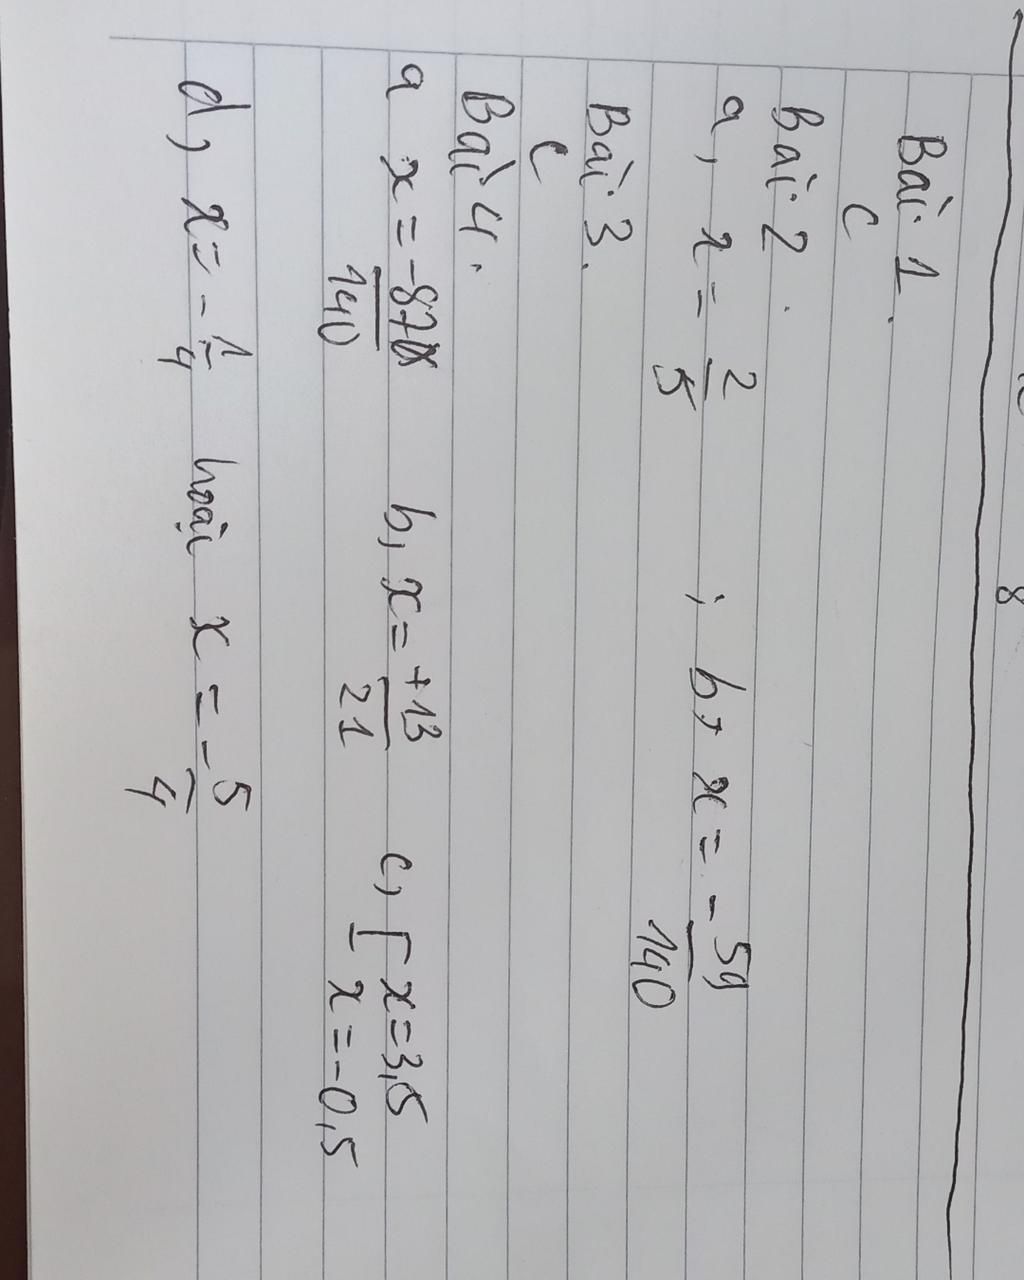 Bài 1.
C
Bài 2.
a, x = 2/5 ; b, x = -59/140
Bài 3.
C
Bài 4.
a x = -87/140 b, x = +13/21 c, [ x = 3,5
x = -0,5
d, x = -1/4 hoặc x = -5/4
8